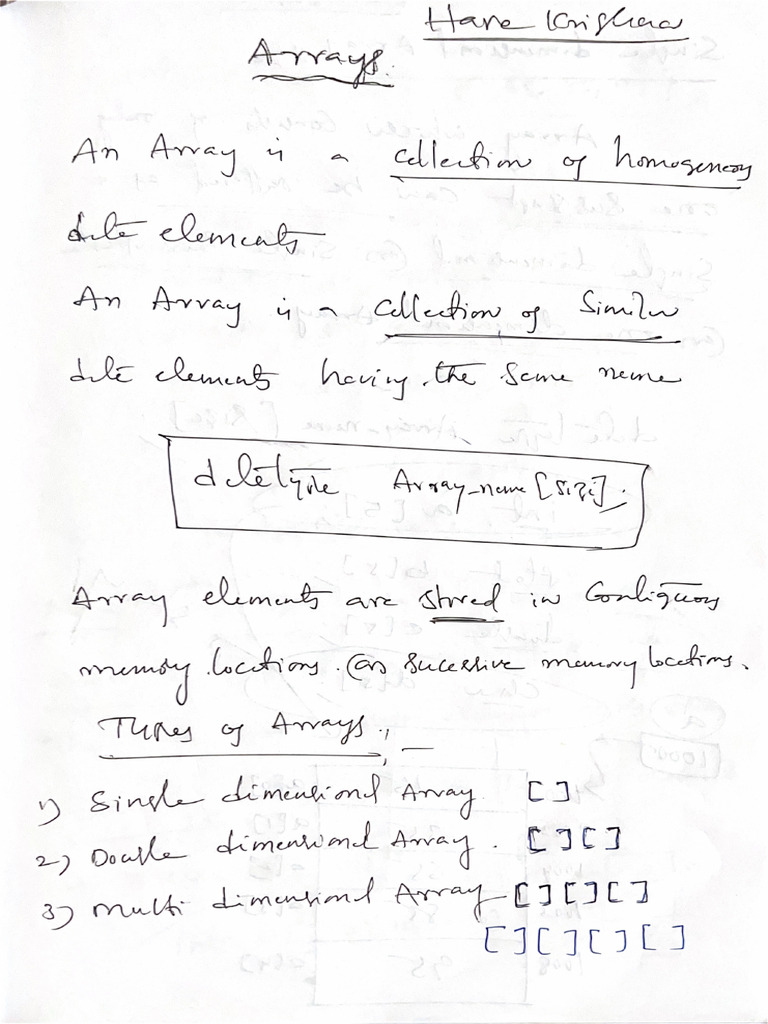 Hare Krishna
Arrays.
An Array is a collection of homogeneous
data elements
An Array is a collection of Similar
data elements having the same name
datatype Array_name [size];
Array elements are stored in Contiguous
memory locations (or) sucessive memory locations.
Types of Arrays :-
1) Single dimensional Array []
2) Double dimensional Array. [][]
3) Multi dimensional Array [][][]
[][][][]